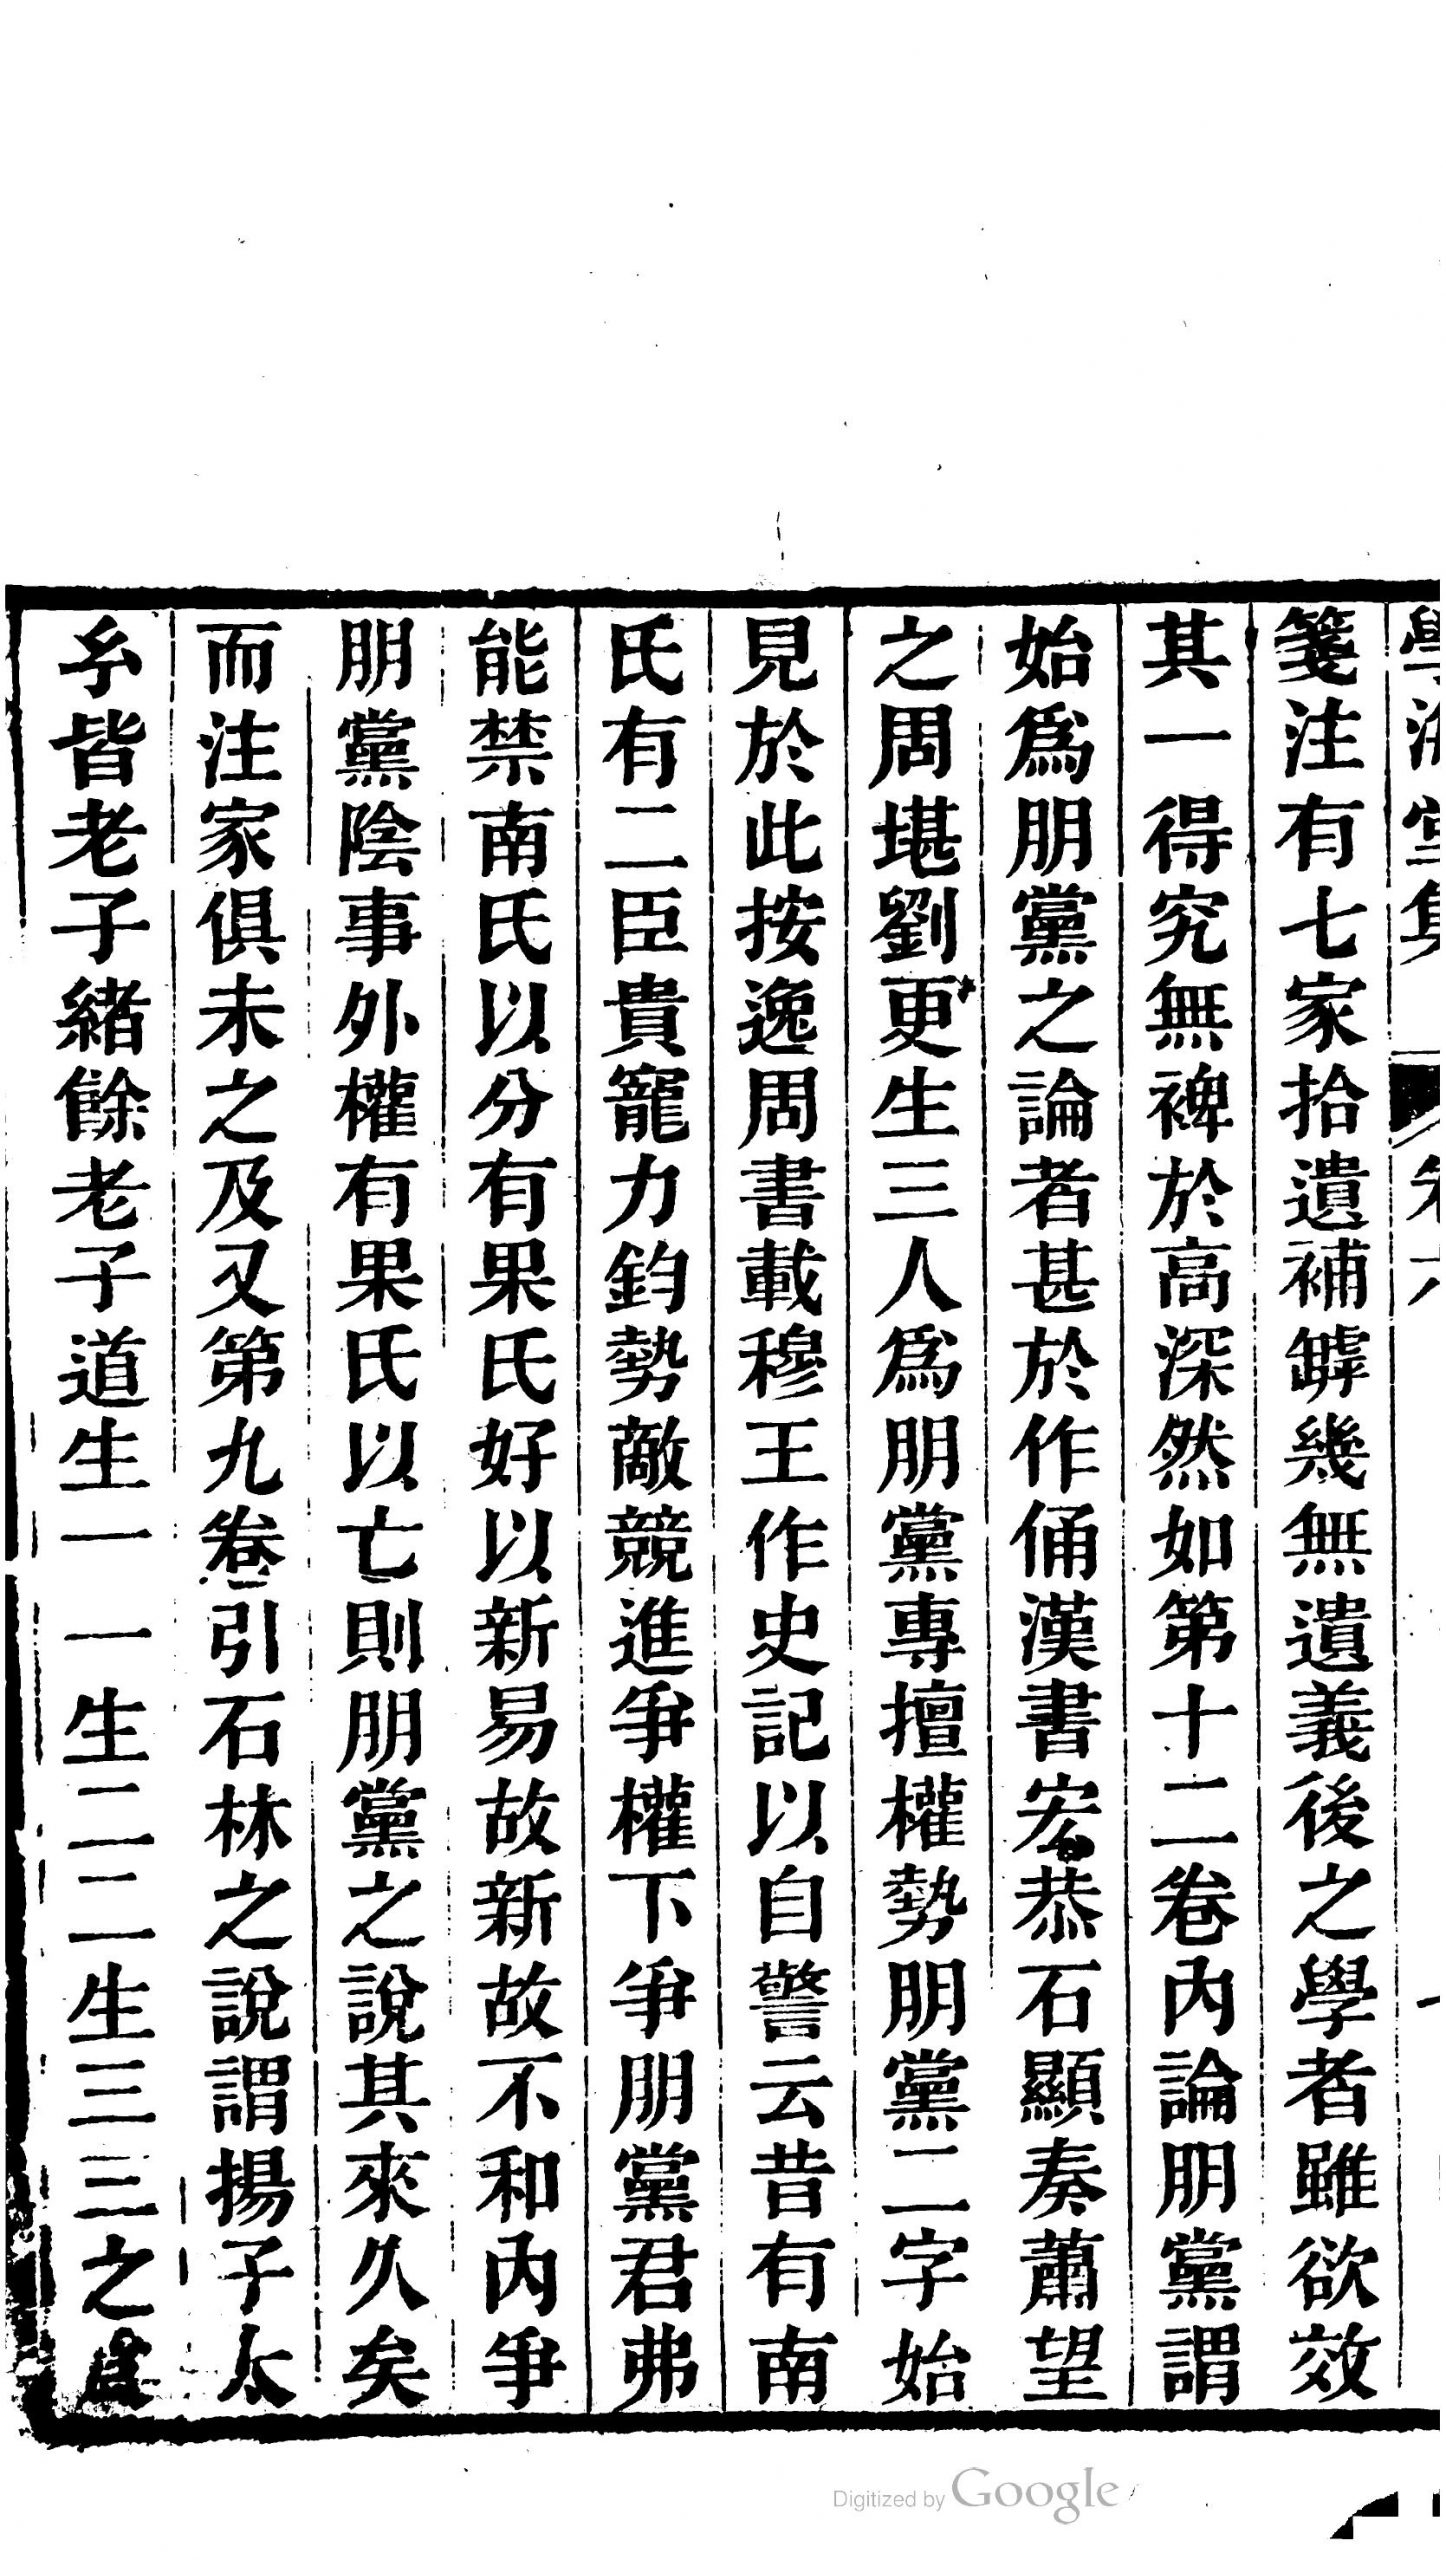 學海堂集 卷六
箋注有七家拾遺補罅幾無遺義後之學者雖欲效
其一得究無裨於高深然如第十二卷內論朋黨謂
始爲朋黨之論者甚於作俑漢書宏恭石顯奏蕭望
之周堪劉更生三人爲朋黨專擅權勢朋黨二字始
見於此按逸周書載穆王作史記以自警云昔有南
氏有二臣貴寵力鈞勢敵競進爭權下爭朋黨君弗
能禁南氏以分有果氏好以新易故新故不和內爭
朋黨陰事外權有果氏以亡則朋黨之說其來久矣
而注家俱未之及又第九卷引石林之說謂揚子太
𤣥皆老子緒餘老子道生一一生二二生三三之爲
Digitized by Google